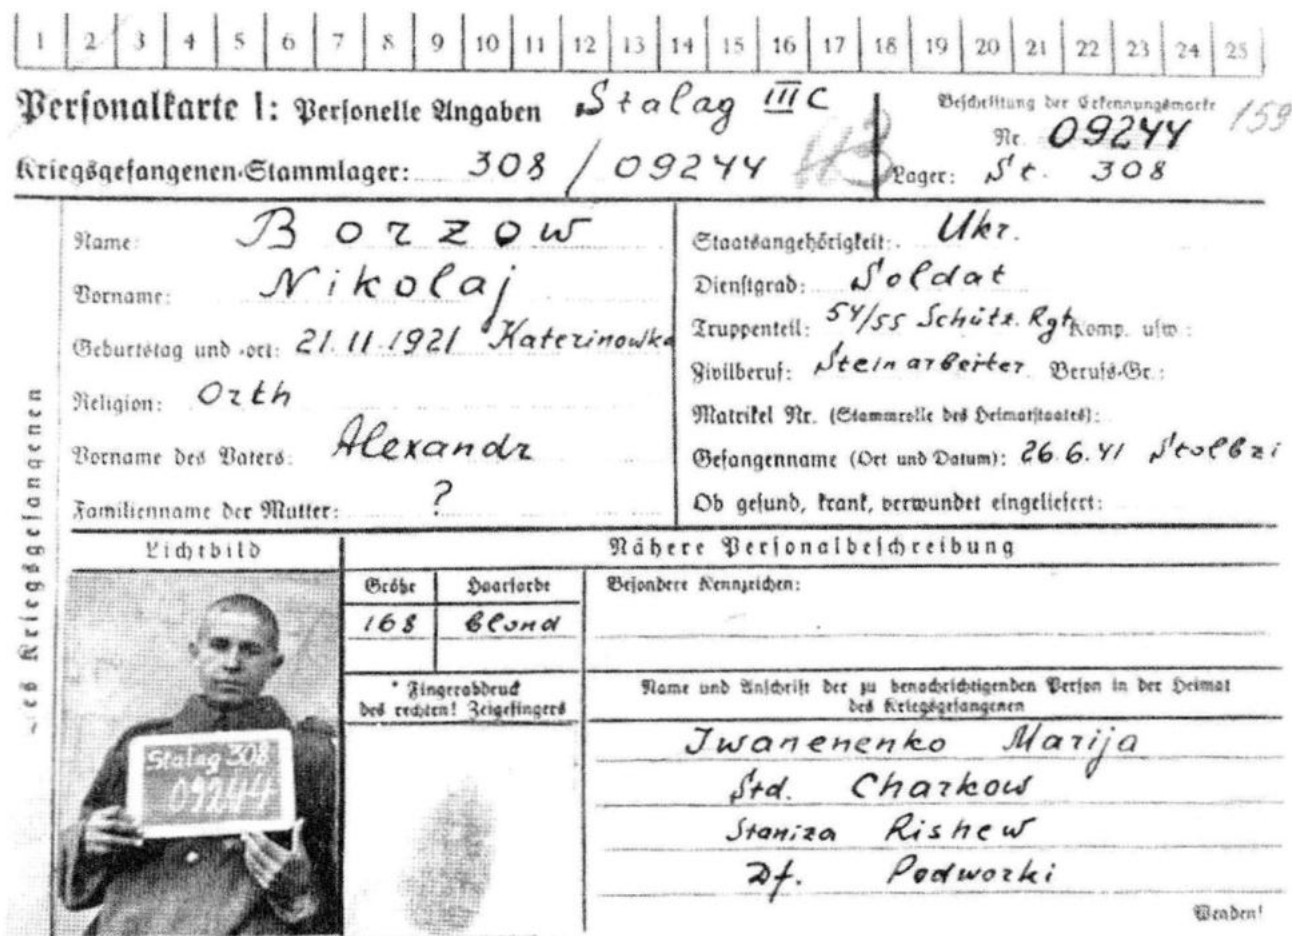 1 2 3 4 5 6 7 8 9 10 11 12 13 14 15 16 17 18 19 20 21 22 23 24 25
Personalkarte I: Personelle Angaben Stalag III C
Beschriftung der Erkennungsmarke 159
Nr. 09244
Kriegsgefangenen-Stammlager: 308 / 09244
Lager: St. 308
des Kriegsgefangenen
Name: Borzow
Vorname: Nikolaj
Geburtstag und -ort: 21.11.1921 Katerinowka
Religion: Orth
Vorname des Vaters: Alexandr
Familienname der Mutter: ?
Staatsangehörigkeit: Ukr.
Dienstgrad: Soldat
Truppenteil: 54/55 Schütz. Rgt Komp. usw.:
Zivilberuf: Steinarbeiter Berufs-Gr.:
Matrikel Nr. (Stammrolle des Heimatstaates):
Gefangenname (Ort und Datum): 26.6.41 Stolbzi
Ob gesund, krank, verwundet eingeliefert:
Lichtbild
Nähere Personalbeschreibung
Größe Haarfarbe
168 blond
Besondere Kennzeichen:
* Fingerabdruck
des rechten! Zeigefingers
Name und Anschrift der zu benachrichtigenden Person in der Heimat
des Kriegsgefangenen
Iwanenenko Marija
Std. Charkow
Staniza Rishew
Df. Podworki
Wenden!
Stalag 308
09244